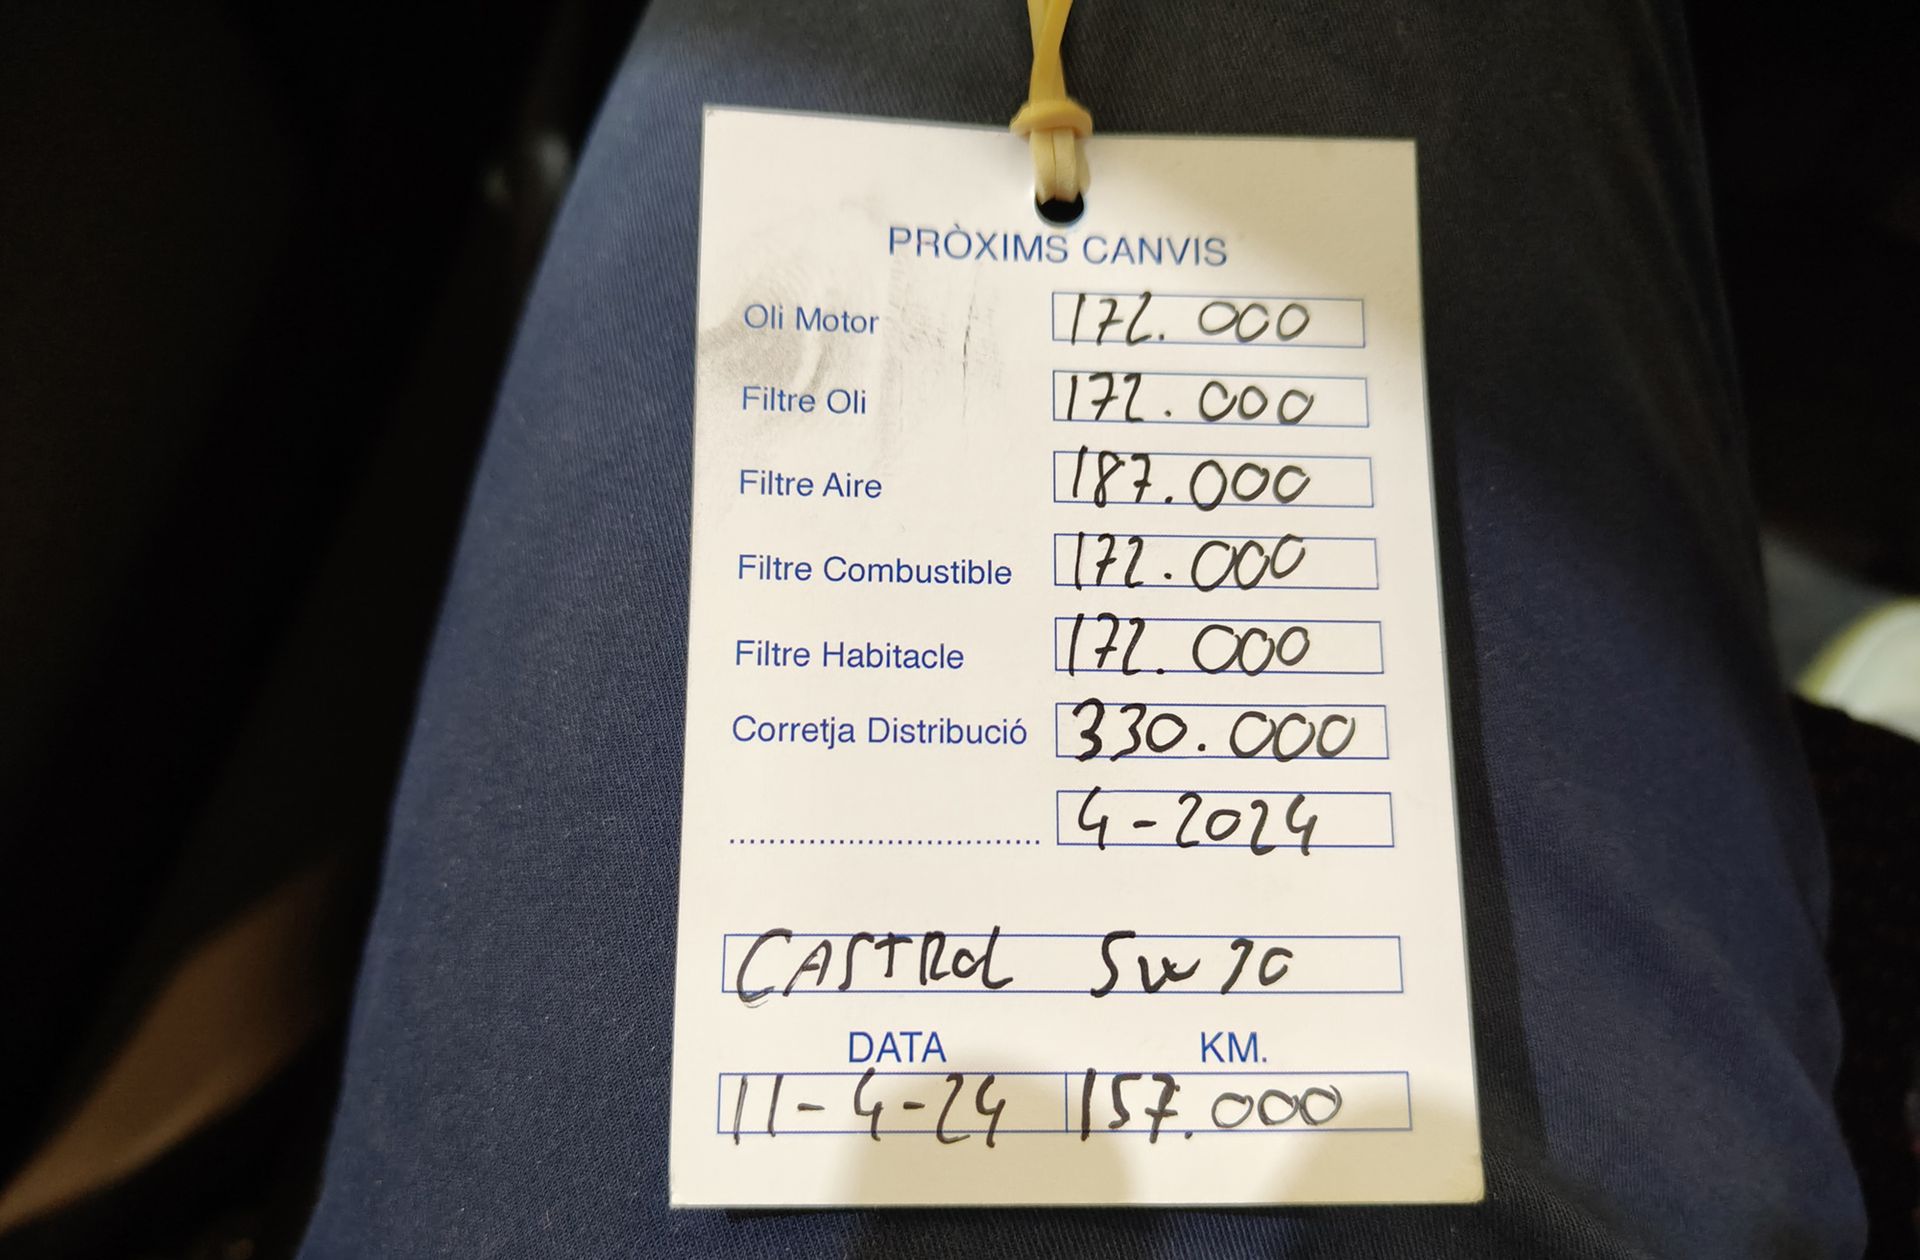 PRÒXIMS CANVIS
Oli Motor 172.000
Filtre Oli 172.000
Filtre Aire 187.000
Filtre Combustible 172.000
Filtre Habitacle 172.000
Corretja Distribució 330.000
.............................. 4-2024
CASTROL 5w30
DATA KM.
11-4-24 157.000